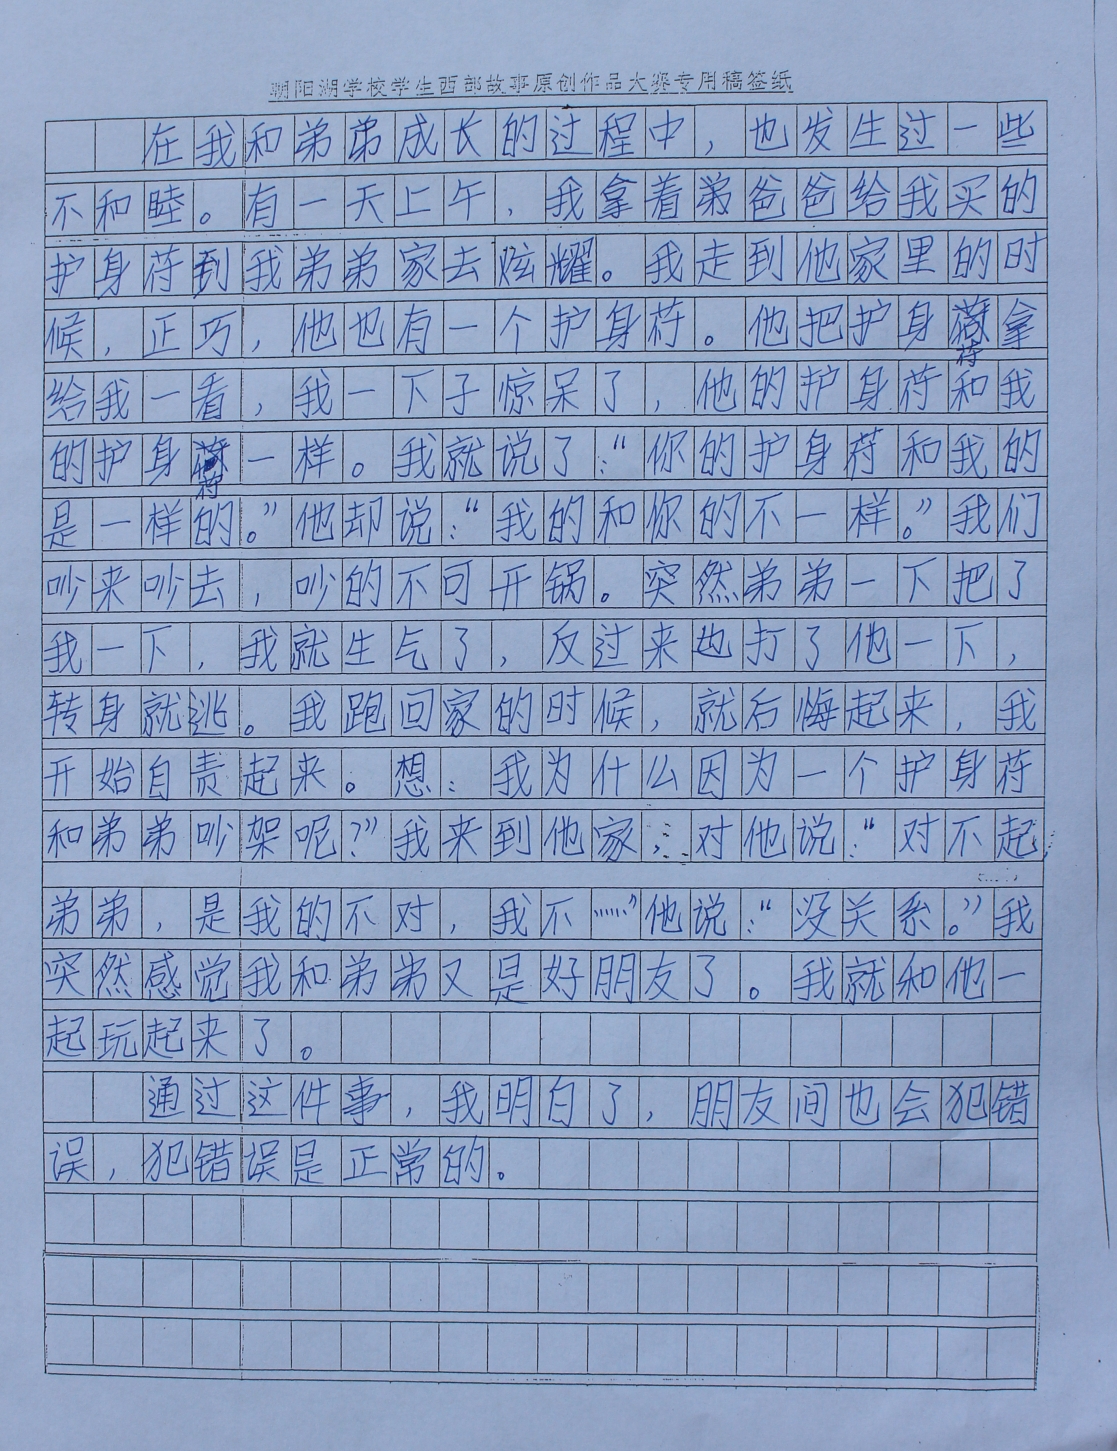 朝阳湖学校学生西部故事原创作品大赛专用稿签纸
在我和弟弟成长的过程中，也发生过一些
不和睦。有一天上午，我拿着弟爸爸给我买的
护身苻到我弟弟家去炫耀。我走到他家里的时
候，正巧，他也有一个护身苻。他把护身苻拿
给我一看，我一下子惊呆了，他的护身苻和我
的护身苻一样。我就说了：“你的护身苻和我的
是一样的。”他却说：“我的和你的不一样。”我们
吵来吵去，吵的不可开锅。突然弟弟一下把了
我一下，我就生气了，反过来也打了他一下，
转身就逃。我跑回家的时候，就后悔起来，我
开始自责起来。想：我为什么因为一个护身苻
和弟弟吵架呢？”我来到他家，对他说：“对不起，
弟弟，是我的不对，我不……”他说：“没关系。”我
突然感觉我和弟弟又是好朋友了。我就和他一
起玩起来了。
通过这件事，我明白了，朋友间也会犯错
误，犯错误是正常的。